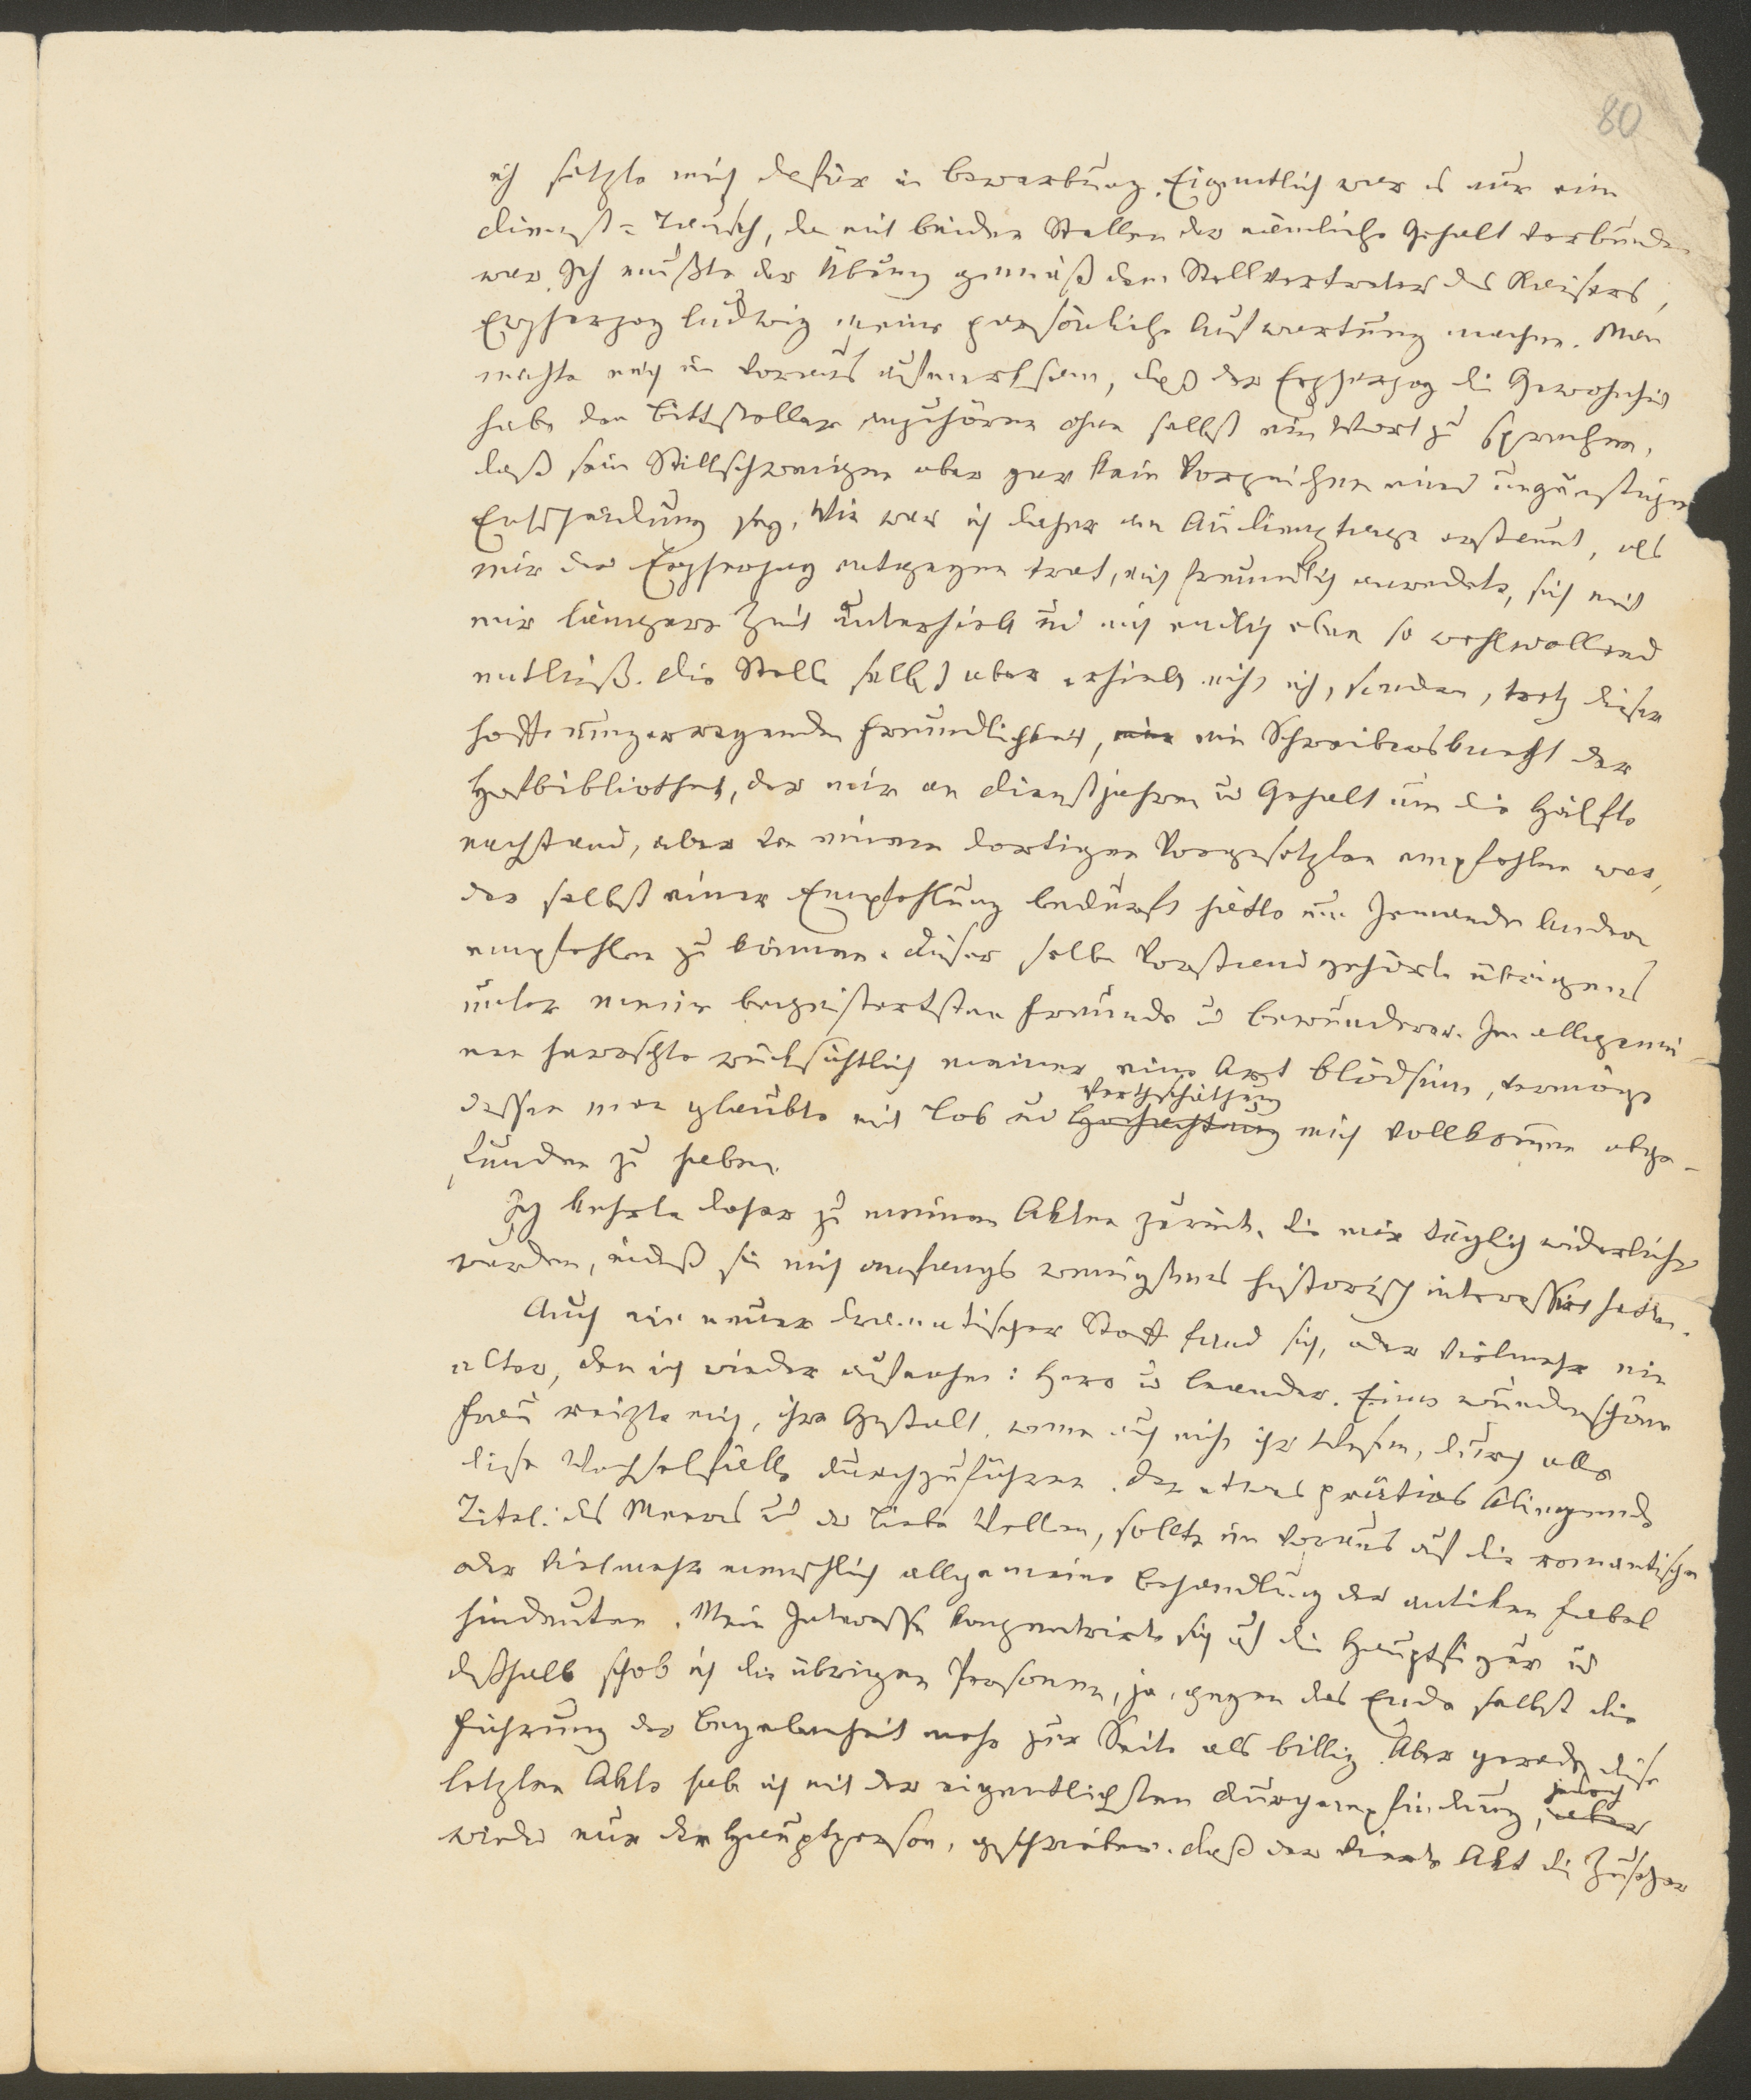 80
ich setzte mich dafür in Bewerbung. Eigentlich war es nur ein
Dienst=Tausch, da mit beiden Stellen der nämliche Gehalt verbunden
war. Ich mußte der Übung gemäß dem Stellvertreter des Kaisers,
Erzherzog Ludwig meine persönliche Aufwartung machen. Man
machte mich im Voraus aufmerksam, daß der Erzherzog die Gewohnheit
habe den Bittsteller anzuhören ohne selbst ein Wort zu sprechen,
daß sein Stillschweigen aber gar kein Vorzeichen einer ungünstigen
Entscheidung sey. Wie war ich daher am Audienztage erstaunt, als
mir der Erzherzog entgegen trat, mich freundlich anredete, sich mit
mir längere Zeit unterhielt und mich endlich eben so wohlwollend
entließ. Die Stelle selbst aber erhielt nicht ich, sondern, trotz dieser
hoffnungerregenden Freundlichkeit, ein ein Schreibersknecht der
Hofbibliothek, der mir an Dienstjahren u Gehalt um die Hälfte
nachstand, aber von einem dortigen Vorgesetzten empfohlen war,
der selbst einer Empfehlung bedurft hätte um Jemanden Andern
empfehlen zu können. Dieser selbe Vorstand gehörte übrigens
unter meine begeistertsten Freunde u Bewunderer. Im allgemei-
nen herrschte rücksichtlich meiner eine Art Blödsinn, vermöge
Werthschätzung
dessen man glaubte mit Lob und Hochachtung mich vollkommen abge-
funden zu haben.
Ich kehrte daher zu meinen Akten zurück, die mir täglich widerlicher
wurden, indeß sie mich anfangs wenigstens historisch interessirt hatten.
Auch ein neuer dramatischer Stoff fand sich, oder vielmehr ein
alter, den ich wieder aufnahm: Hero u Leander. Eine wunderschöne
Frau reizte mich, ihre Gestalt, wenn auch nicht ihr Wesen, durch alle
diese Wechselfälle durchzuführen. Der etwas pretiös klingende
Titel: des Meeres und der Liebe Wellen, sollte im Voraus auf die romantische
oder vielmehr menschlich allgemeine Behandlung der antiken Fabel
hindeuten. Mein Interesse konzentrirte sich auf die Hauptfigur u
deßhalb schob ich die übrigen Personen, ja, gegen das Ende selbst die
Führung der Begebenheit mehr zur Seite als billig. Aber gerade diese
jedoch
letzten Akte habe ich mit der eigentlichsten Durchempfindung, aber
wieder nur der Hauptperson, geschrieben. Daß der vierte Akt die Zuseher